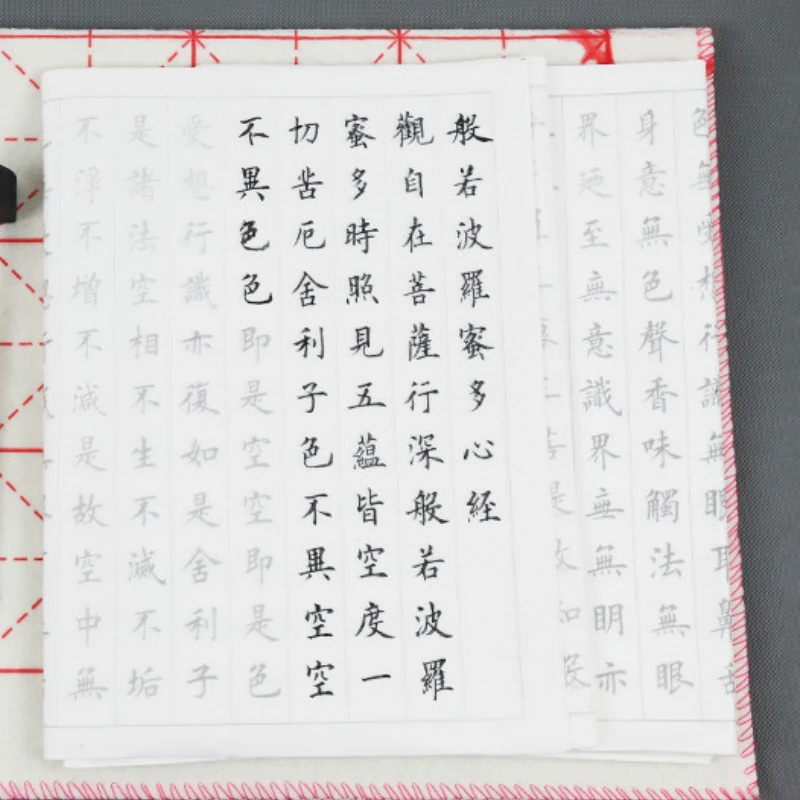 般若波羅蜜多心経
觀自在菩薩行深般若波羅
蜜多時照見五蘊皆空度一
切苦厄舍利子色不異空空
不異色色即是空空即是色
受想行識亦復如是舍利子
是諸法空相不生不滅不垢
不淨不增不減是故空中無
色無受想行識無眼耳鼻舌
身意無色聲香味觸法無眼
界廼至無意識界無無明亦